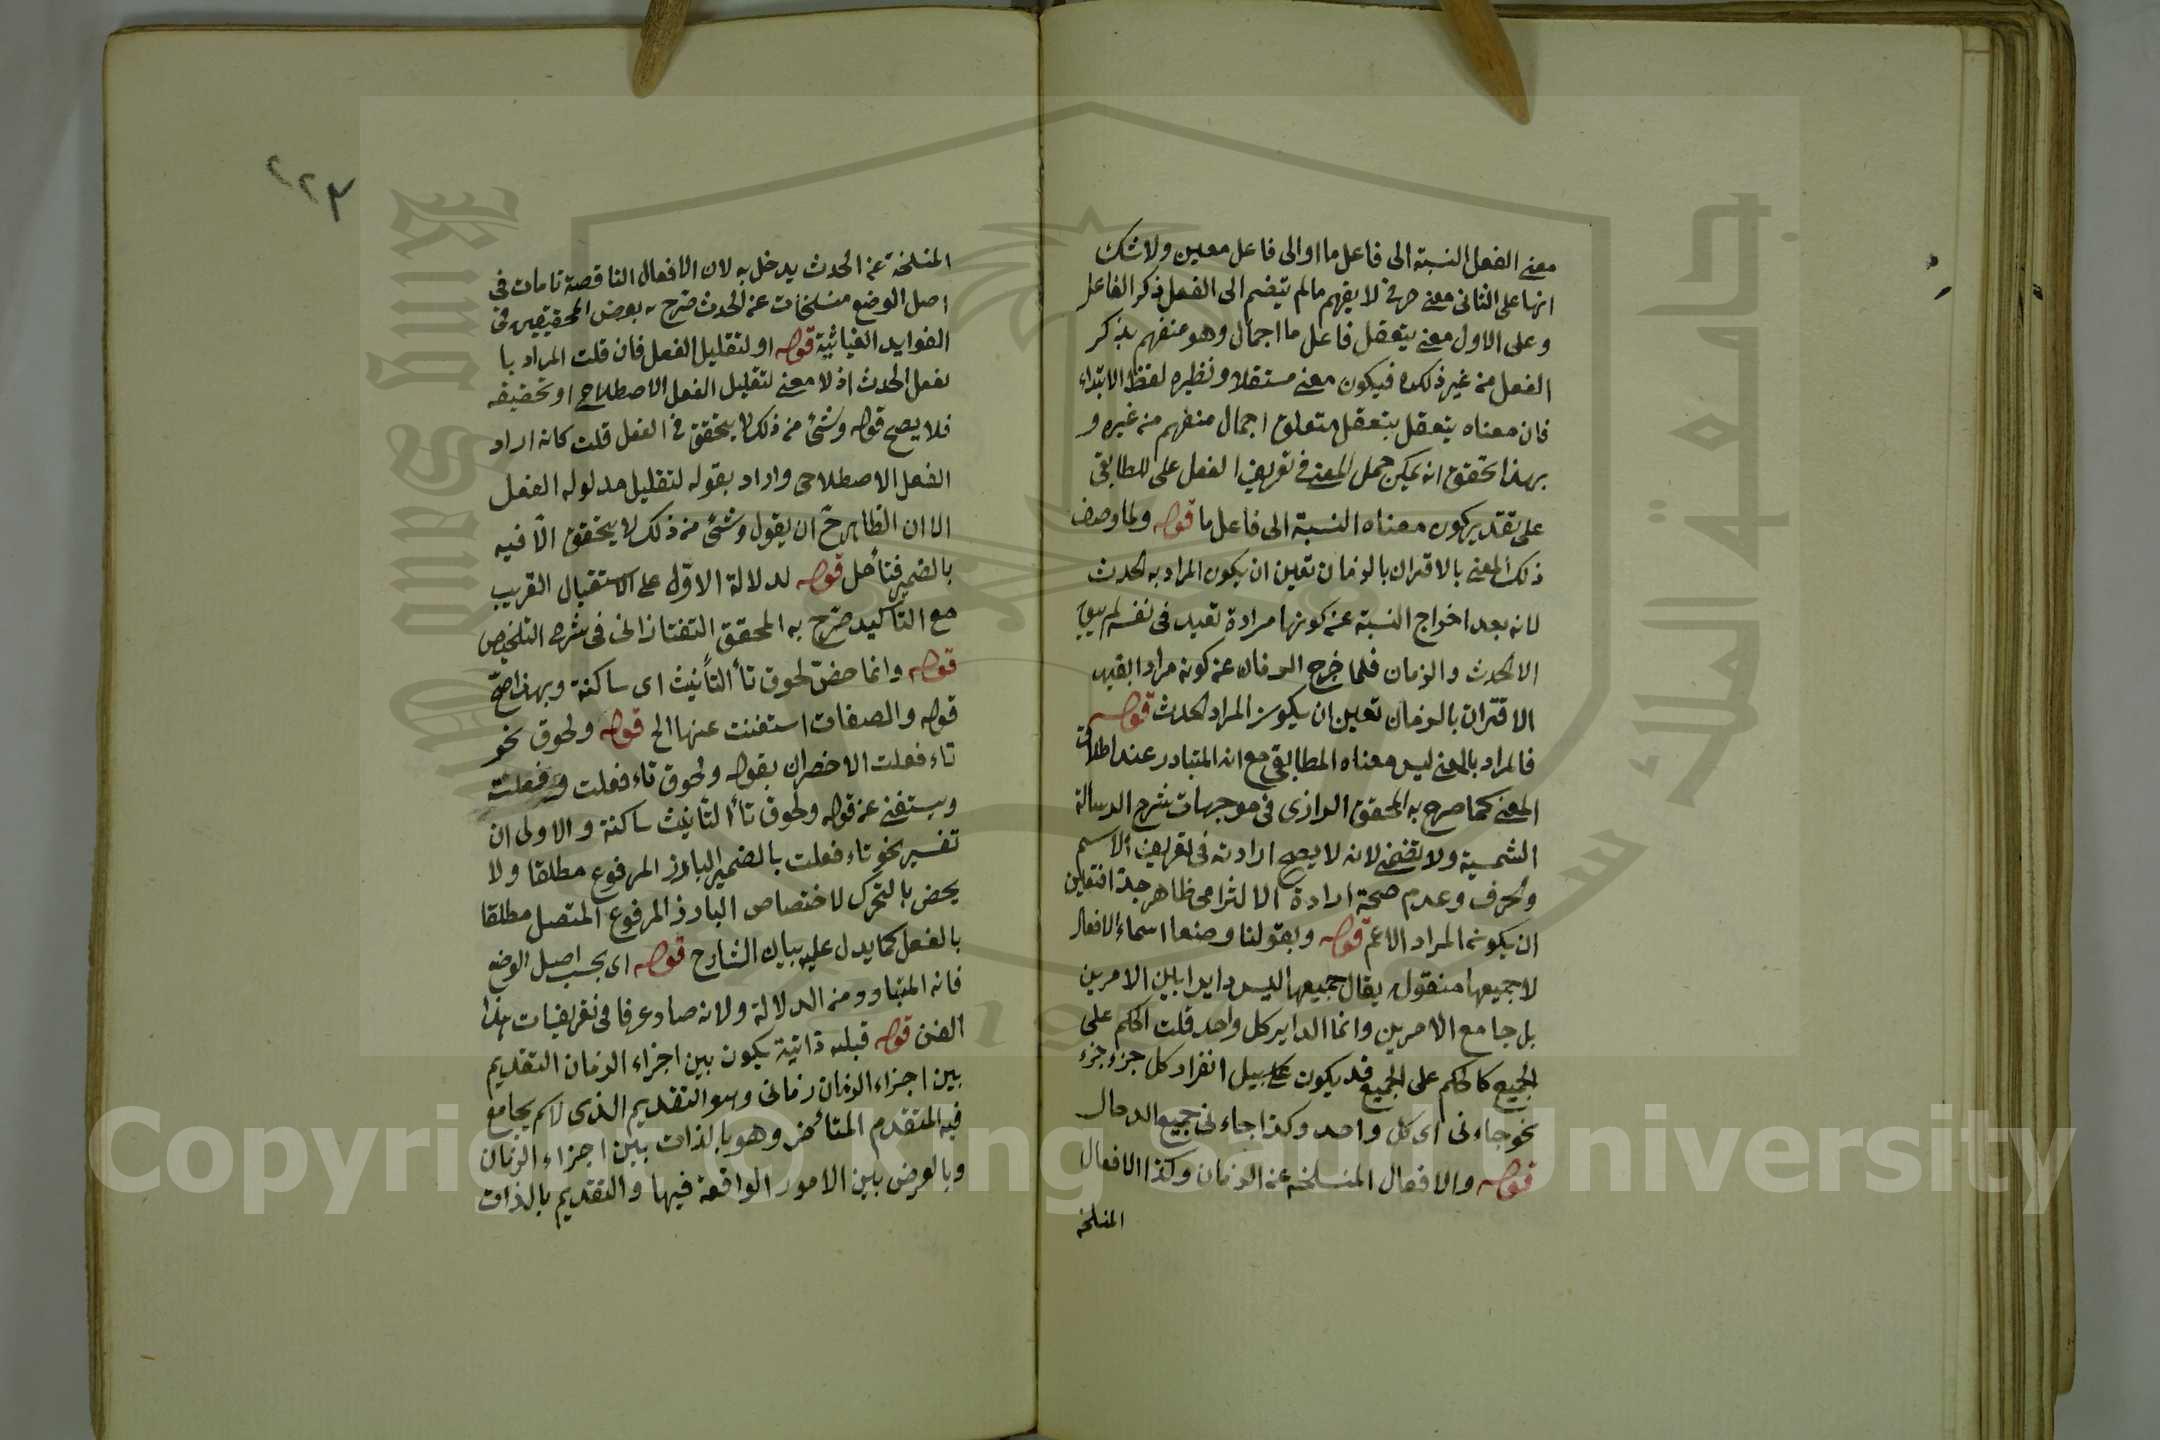 معنى الفعل النسبة الى فاعل ما او الى فاعل معين ولا شك
انها على الثانى معنى حرفى لا يفهم مالم يتضم الى الفعل ذكر الفاعل
وعلى الاول معنى يتعقل فاعل ما اجمال وهو منفهم بذكر
الفعل من غير ذلك فيكون معنى مستقلا ونظيره لفظ الابتداء
فان معناه يتعقل بتعقل متعلق اجمال منفهم من غيره و
بهذا تحقق انه يمكن حمل المعنى فى تعريف الفعل على المطابقى
على تقدير كون معناه النسبة الى فاعل ما قوله ولما وصف
ذلك المعنى بالاقتران بالزمان تعين ان يكون المراد به الحدث
لانه بعد اخراج النسبة عن كونها مرادة تعيد فى نفسه لم يبق
الا الحدث والزمان فلما خرج الزمان عن كونه مرادا بقيد
الاقتران بالزمان تعين ان يكون المراد الحدث قوله
فالمراد بالمعنى ليس معناه المطابقى مع انه المتبادر عند اطلاق
المعنى كما صرح به المحقق الرازى فى موجهات شرح الرسالة
الشمسية ولا تضمنى لانه لا يصح ارادته فى تعريف الاسم
والحرف وعدم صحة ارادة الالتزامى ظاهر جدا فتعين
ان يكون المراد الاعم قوله وبقولنا وضعا اسماء الافعال
لا جميعها منقول يقال جميعها ليس دايرا بين الامرين
بل جامع الامرين وانما الداير كل واحد قلت الحكم على
الجميع كالحكم على الجميع قد يكون على سبيل انفراد كل جزء جزء
نحو جاءنى اى كل واحد وكذا جاءنى جميع الرجال
قوله والافعال المنسلخة عن الزمان وكذا الافعال
المنسلخة
٢٢٣
المنسلخة عن الحدث يدخل به لان الافعال الناقصة تامات فى
اصل الوضع منسلخات عن الحدث صرح به بعض المحققين فى
الفوايد الغياثية قوله او لتقليل الفعل فان قلت المراد با
لفعل الحدث اذ لا معنى لتقليل الفعل الاصطلاحى او تحقيقه
فلا يصح قوله وشئ من ذلك لا يتحقق فى الفعل قلت كانه اراد
الفعل الاصطلاحى واراد بقوله لتقليل مدلوله الفعل
الا ان الظاهر ح ان يقول وشئ من ذلك لا يتحقق الا فيه
بالضمير فتأمل قوله لدلالة الاول على الاستقبال القريب
مع التأكيد صرح به المحقق التفتازانى فى شرح التلخيص
قوله وانما خص لحوق تأ التأنيث اى ساكنة وبهذا صح
قوله والصفات استغنت عنها الخ قوله ولحوق نحو
تاء فعلت الاخصران بقوله ولحوق تاء فعلت وفعلت
ويستغنى عن قوله ولحوق تأ التأنيث ساكنة والاولى ان
تفسير نحو تاء فعلت بالضمير البارز المرفوع مطلقا ولا
يخص بالتحرك لاختصاص البارز المرفوع المتصل مطلقا
بالفعل كما يدل عليه بيان الشارح قوله اى بحسب اصل الوضع
فانه المتبادر من الدلالة ولانه صار عرفا فى تعريفات هذا
الفن قوله قبلية ذاتية يكون بين اجزاء الزمان التقديم
بين اجزاء الزمان زمانى وهو التقديم الذى لا يجامع
فيه المتقدم المتأخر وهو بالذات بين اجزاء الزمان
وبالعرض بين الامور الواقعة فيها والتقديم بالذات
King Saud University
جامعة الملك سعود
Copyright © King Saud University